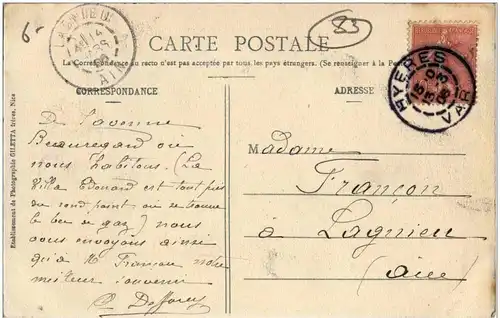 6-
83
CARTE POSTALE
La Correspondance au recto n'est pas acceptée par tous les pays étrangers. (Se renseigner à la Poste
CORRESPONDANCE
ADRESSE
HYERES
VAR
AIN
Etablissement de Photographie GILETTA frères, Nice
De l'avenue
Beauregard où
nous habitons. (La
Villa Edouard est tout près
du rond point où se trouve
le bec de gaz) nous
vous envoyons ainsi
qu'à Mr Françon notre
meilleur souvenir
Madame
Françon
à Lagnieu
(Ain)